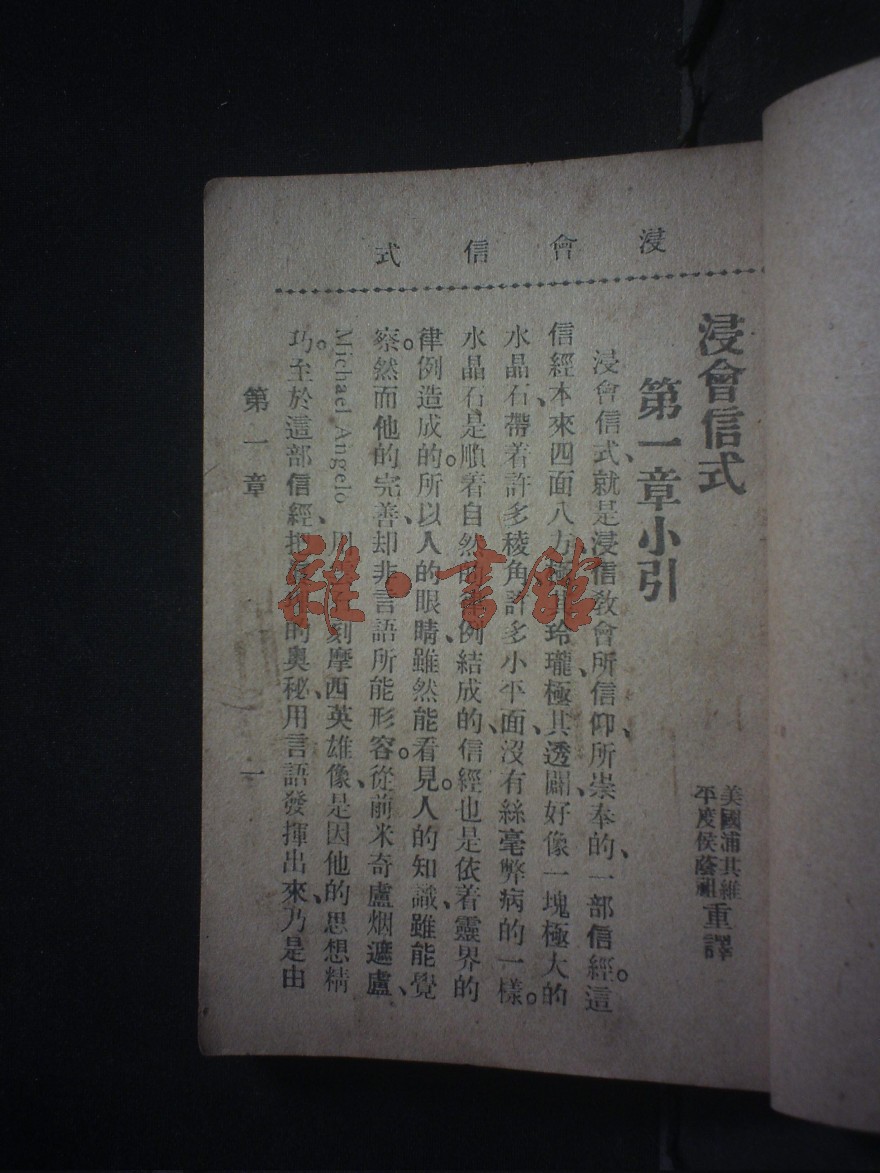 浸會信式
浸會信式
第一章小引
美國浦其維
平度侯蔭祖
重譯
浸會信式、就是浸信敎會所信仰、所崇奉的、一部信經。這
信經、本來四面八方、玲瓏、極其透闢、好像一塊極大的
水晶石、帶着許多稜角、許多小平面、沒有絲毫弊病的一樣。
水晶石是順着自然的例結成的、信經也是依着靈界的
律例造成的。所以人的眼睛、雖然能看見。人的知識、雖能覺
察。然而他的完善、却非言語所能形容。從前米奇盧烟遮盧、
Michael Angelo 刻摩西英雄像、是因他的思想精
巧。至於這部信經、的奧秘、用言語發揮出來、乃是由
第一章
一
雜·書館